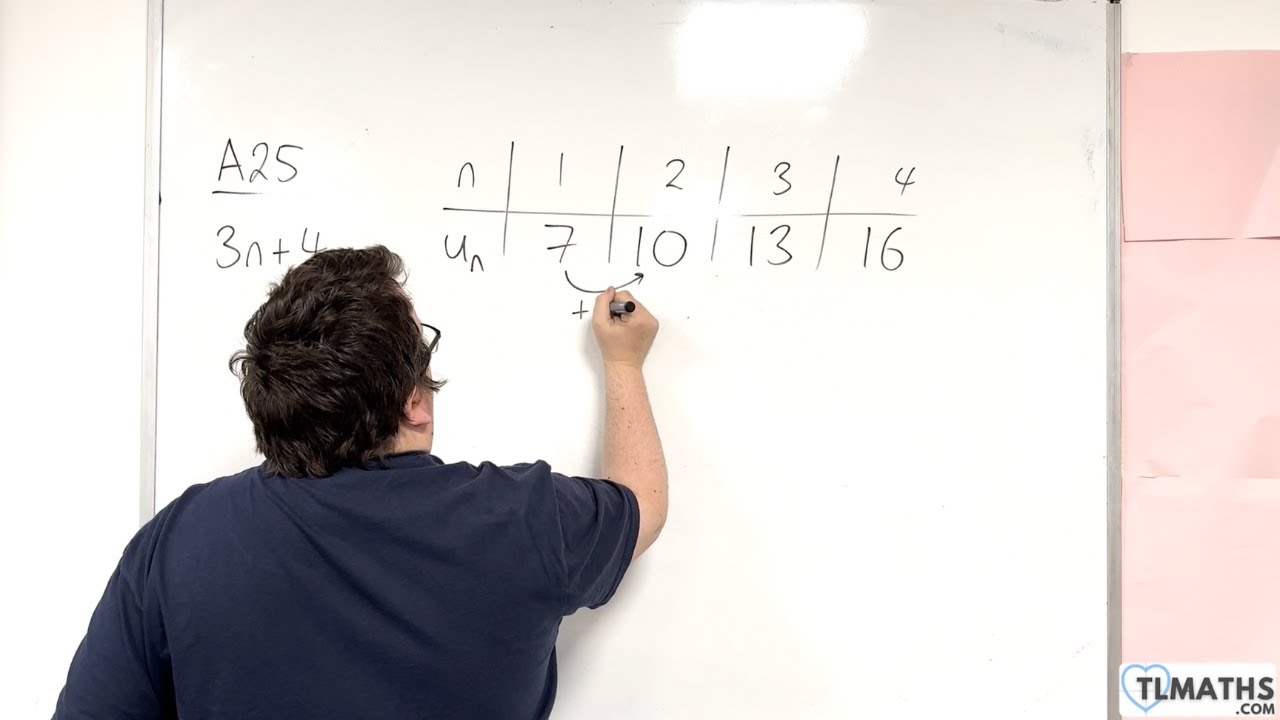 A25
n 1 2 3 4
3n+4
uₙ 7 10 13 16
+
TLMATHS
.COM